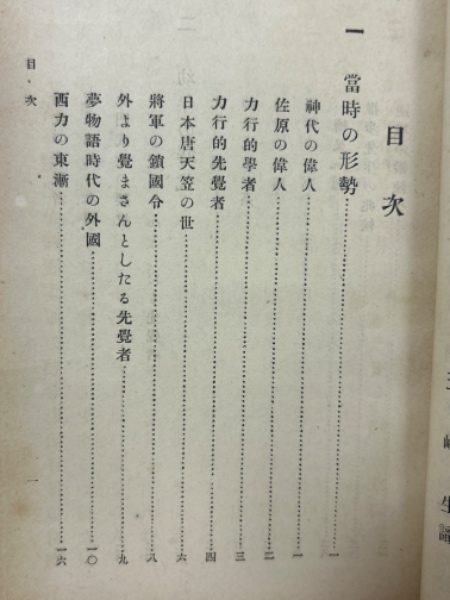 目次
一 當時の形勢……一
神代の偉人……一
佐原の偉人……二
力行的學者……三
力行的先覺者……四
日本唐天笠の世……六
將軍の鎖國令……八
外より覺まさんとしたる先覺者……九
夢物語時代の外國……一〇
西力の東漸……一六
目・次
一